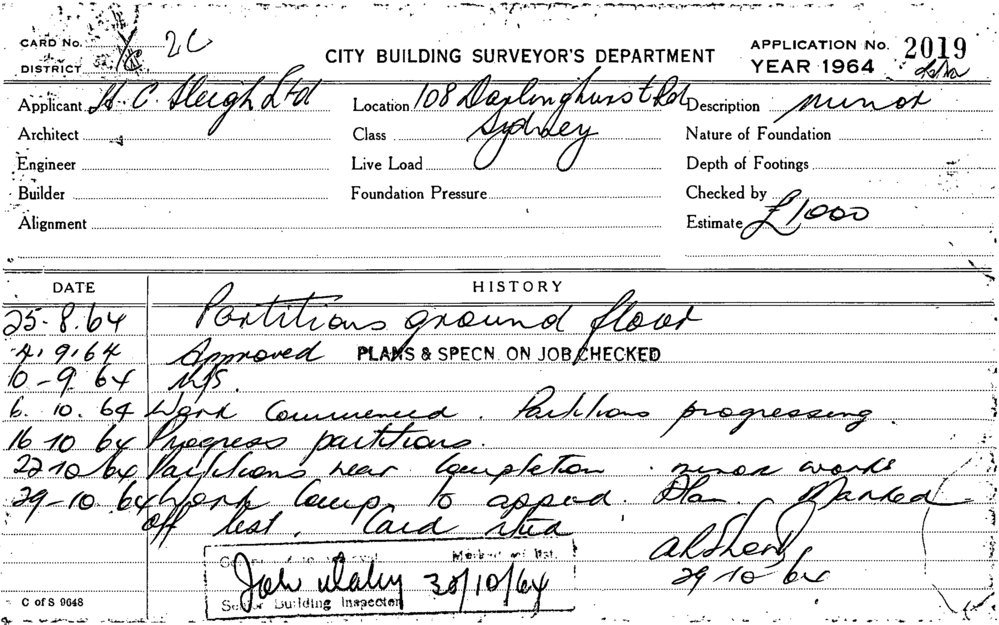 CARD No. 2C
DISTRICT
CITY BUILDING SURVEYOR'S DEPARTMENT
APPLICATION No. 2019
YEAR 1964
Applicant H. C. Sleigh Ltd
Location 108 Darlinghurst Rd
Sydney
Description minor
Architect
Class
Nature of Foundation
Engineer
Live Load
Depth of Footings
Builder
Foundation Pressure
Checked by
Alignment
Estimate £1000
DATE HISTORY
25-8-64 Partitions ground floor
4.9.64 Approved PLANS & SPECN. ON JOB CHECKED
10-9.64 N/S.
6.10.64 Work Commenced. Partitions progressing
16 10 64 Progress partitions.
22 10 64 Partitions near completion. minor works
29-10.64 Work Comp to appd. Plan Marked
off list. Card
29 10 64
Marked off list.
30/10/64
Senior Building Inspector
C of S 9648